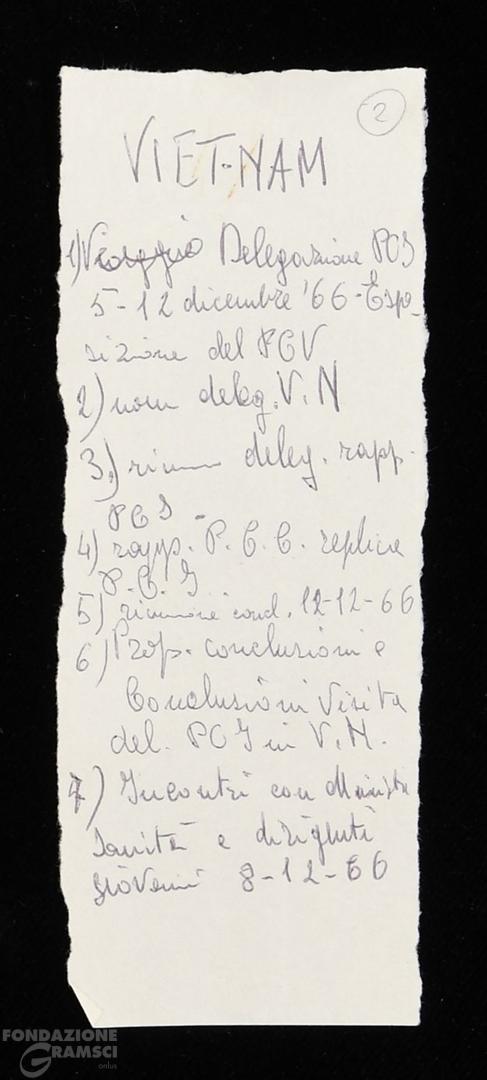 2
VIET-NAM
1) Viaggio Delegazione PCI
5-12 dicembre '66 - Espo-
sizione del PCV
2) nom deleg. V.N
3) riun deleg. rapp.
PCI -
4) rapp. P.C.C. replica
P.C.I
5) riunione concl. 12-12-66
6) Prop. conclusioni e
Conclusioni Visita
del. PCI in V.N.
7) Incontri con Ministro
Sanità e dirigenti
giovani 8-12-66
FONDAZIONE
GRAMSCI
onlus